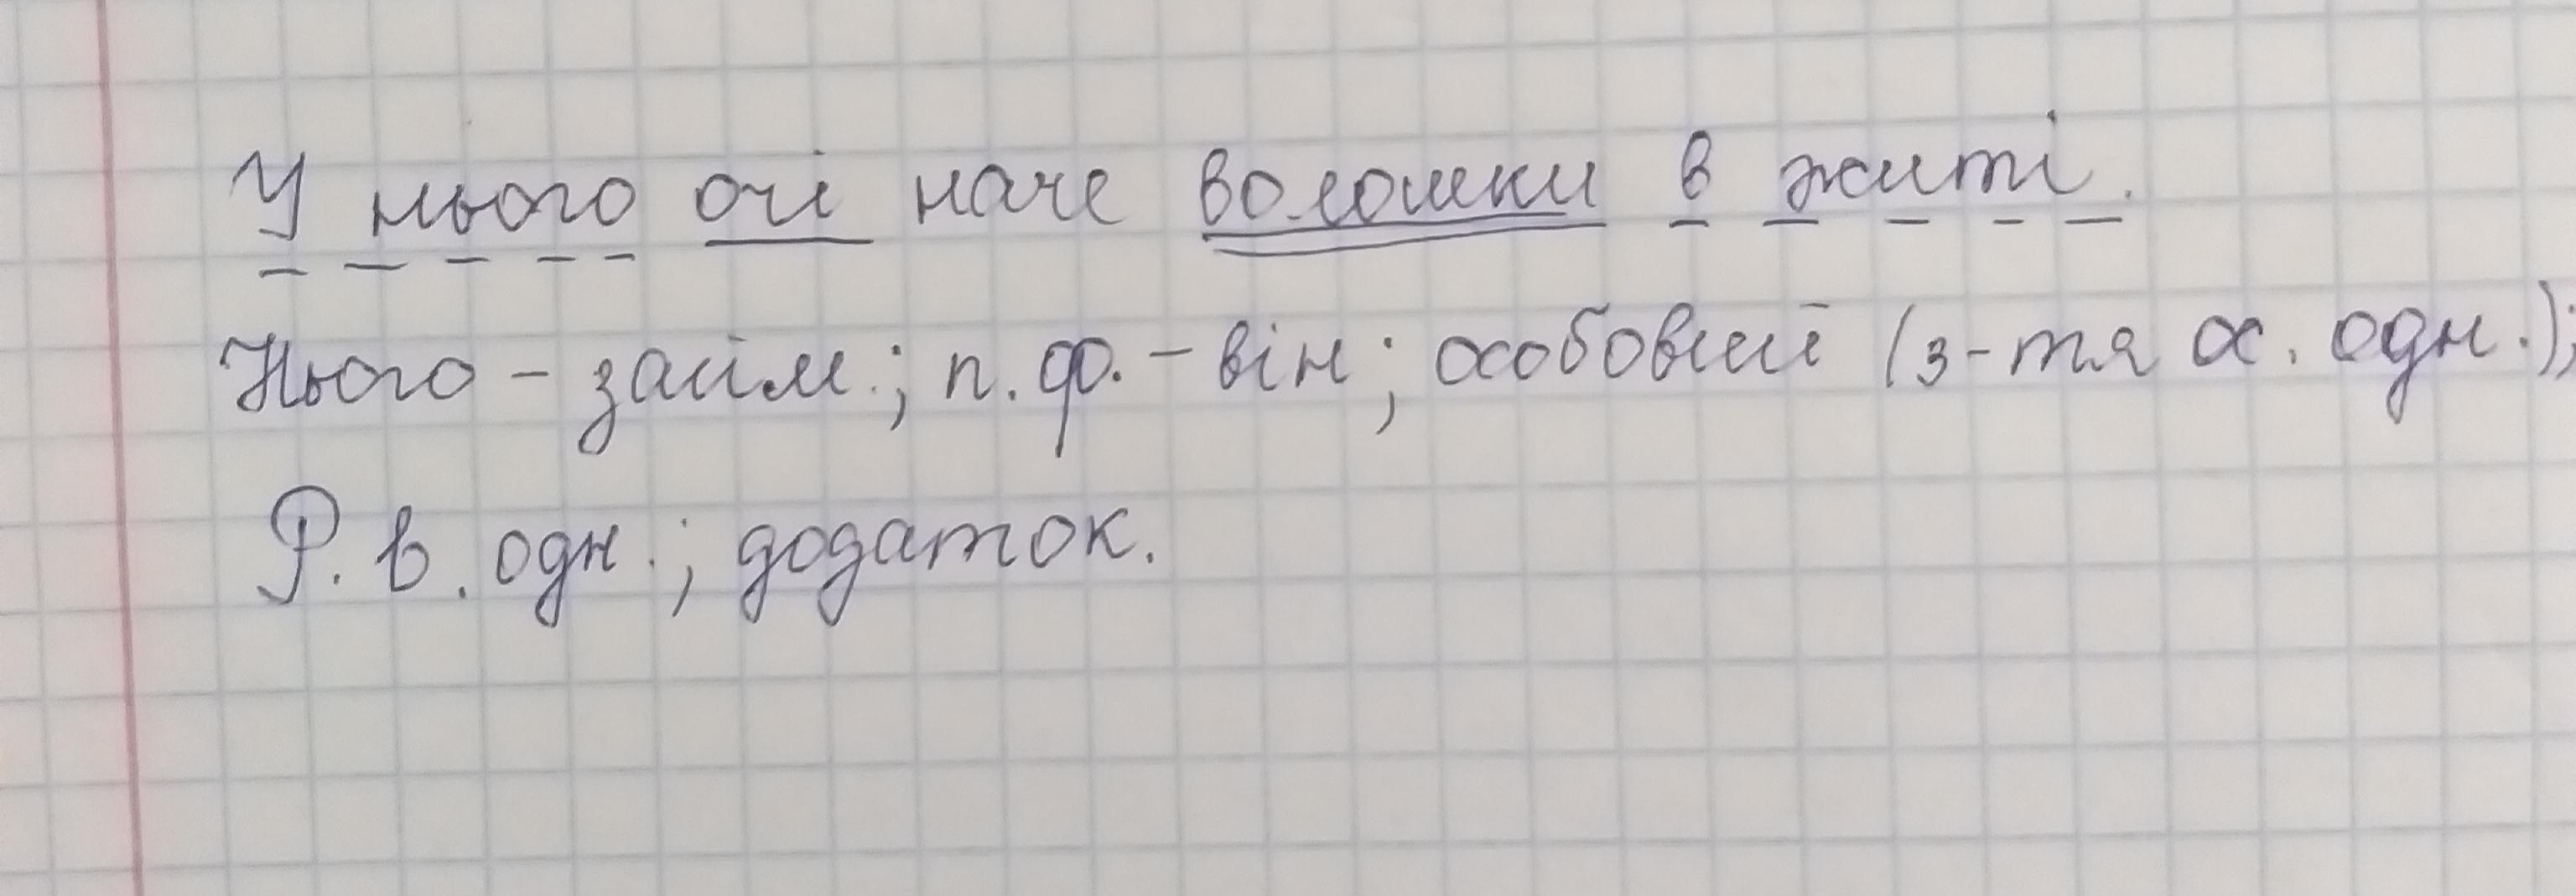 У нього очі наче волошки в житі.
Нього - займ.; п. ф. - він; особовий (3-тя ос. одн.);
Р. в. одн.; додаток.